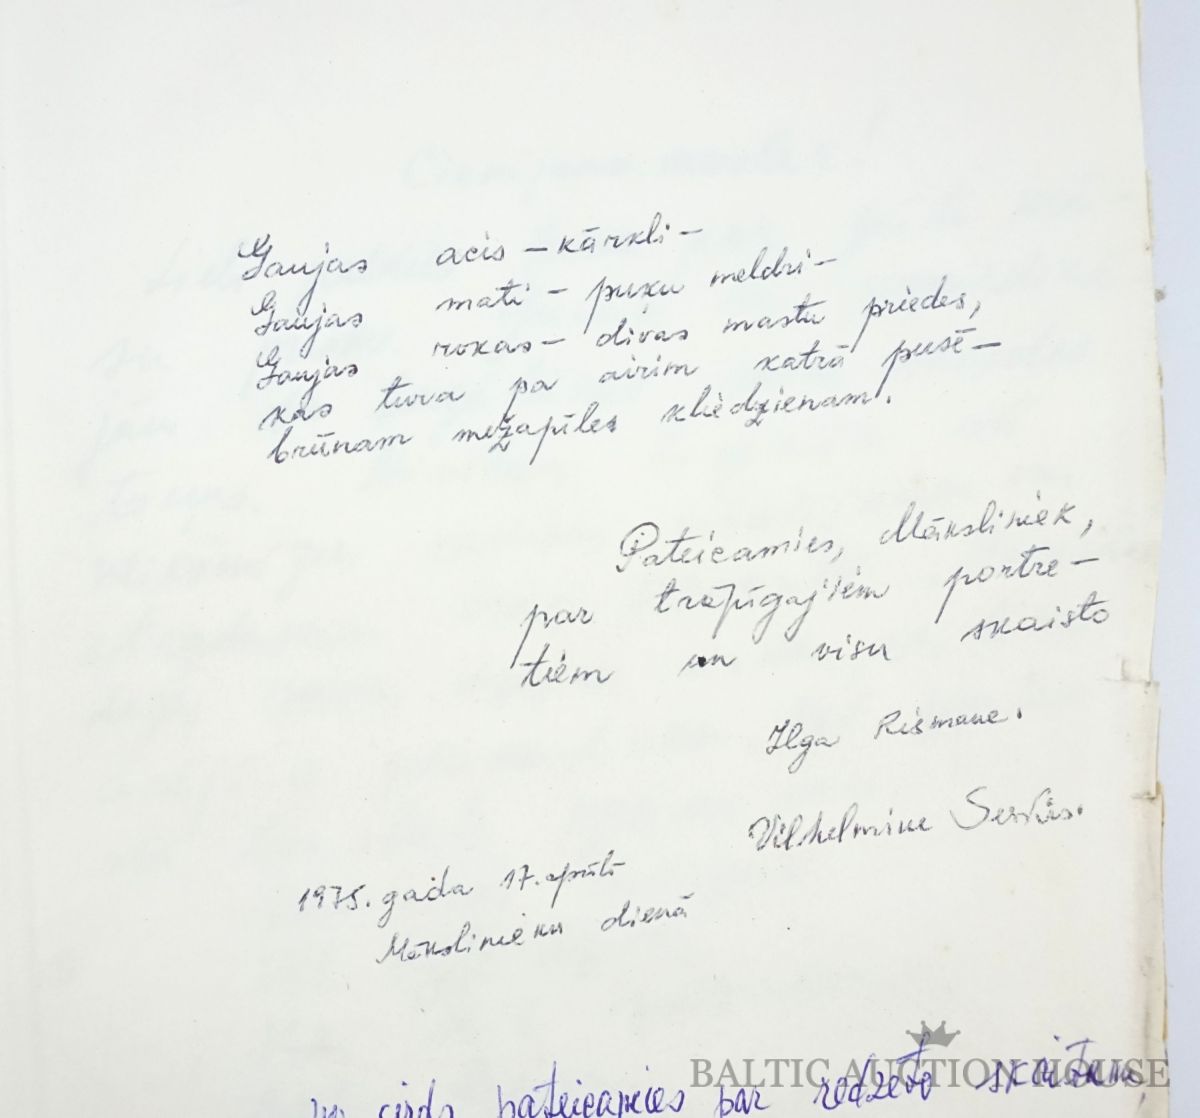 Gaujas acis – kārkli –
Gaujas mati – puķu meldri –
Gaujas rokas – divas mastu priedes,
kas tura pa airim katrā pusē –
brūnam mežapīles kliedzienam.
Pateicamies, Māksliniek,
par trāpīgajiem portre-
tiem un visu skaisto
Ilga Rismane.
Vilhelmīne
1975. gada 17. aprīlī
Mākslinieku dienā
BALTIC AUCTION HOUSE
sirds pateicamies par redzēto